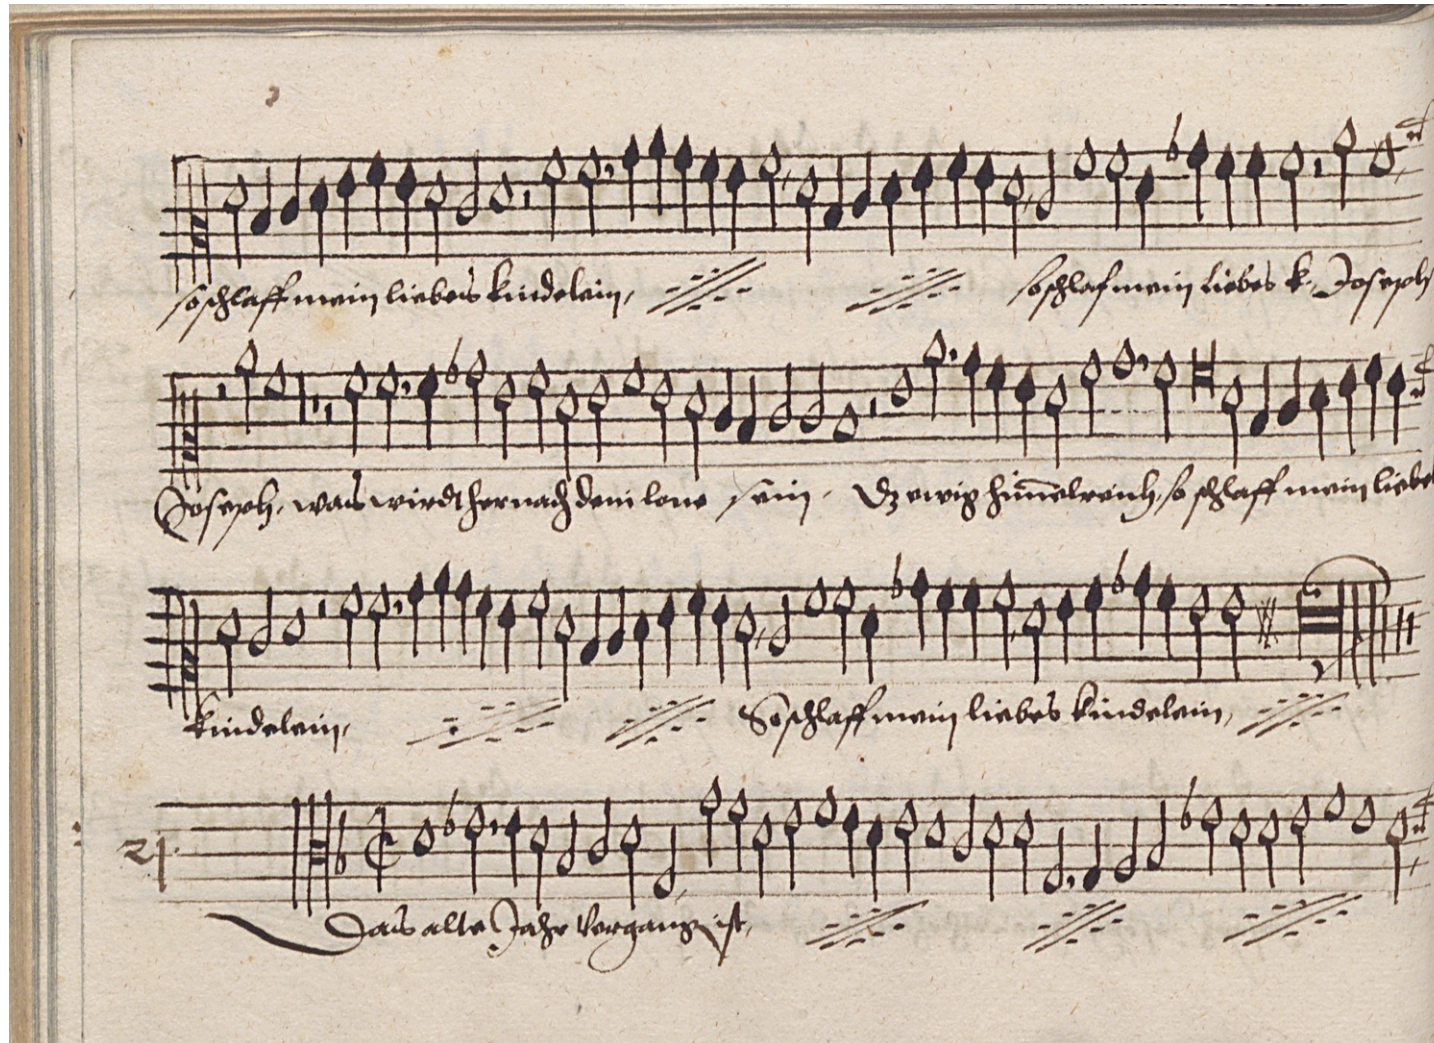 so schlaff mein liebes kindelein, so schlaf mein liebes k. Joseph
Joseph, was wirdt hernach dein lone sein. dz ewig himelreich, so schlaff mein liebes
kindelein, So schlaff mein liebes kindelein,
21.
Das alte Jahr vergang ist,